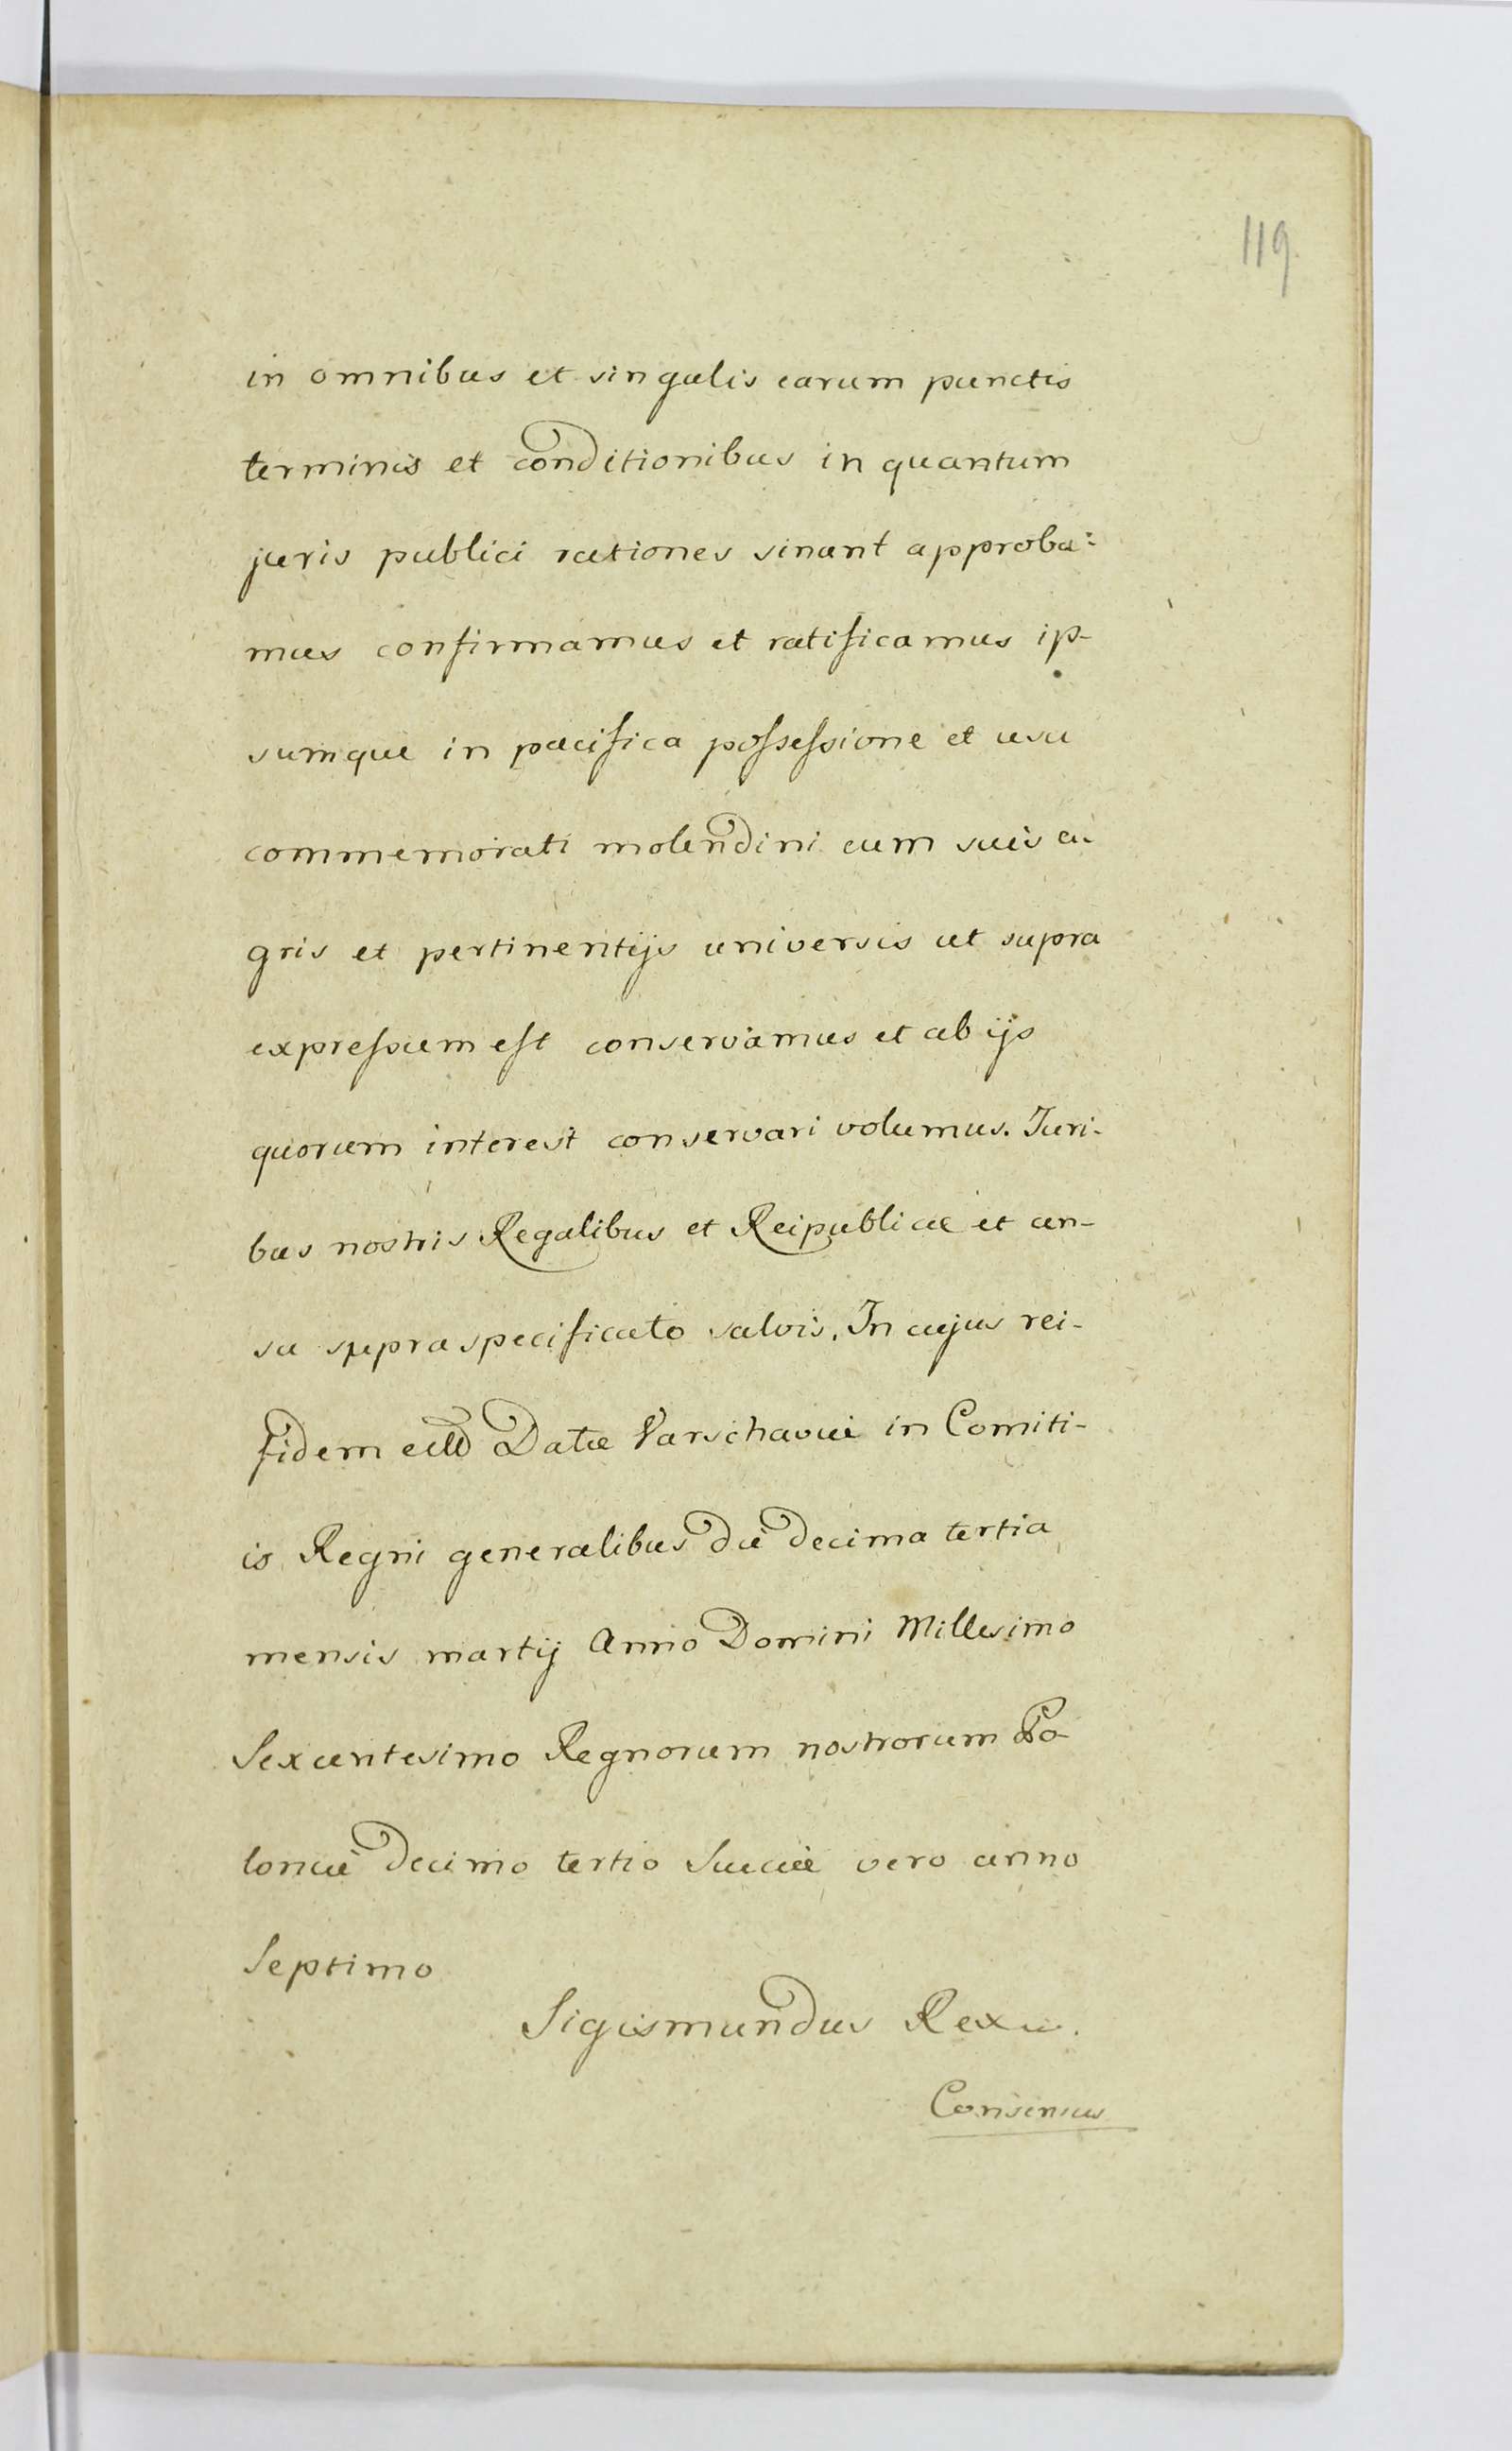 119
in omnibus et singulis earum punctis
terminis et conditionibus in quantum
juris publici rationes sinunt approba-
mus confirmamus et ratificamus ip-
sumque in pacifica possessione et usu
commemorati molendini cum suis a-
gris et pertinentijs universis ut supra
expressum est conservamus et ab ijs
quorum interest conservari volumus. Juri-
bus nostris Regalibus et Reipublicae et cen-
su supra specificato salvis. In cujus rei-
fidem Datae Varschaviae in Comiti-
is Regni generalibus die decima tertia
mensis martij Anno Domini Millesimo
Sexcentesimo Regnorum nostrorum Po-
loniae decimo tertio Sueciae vero anno
Septimo
Sigismundus Rex
Consensus